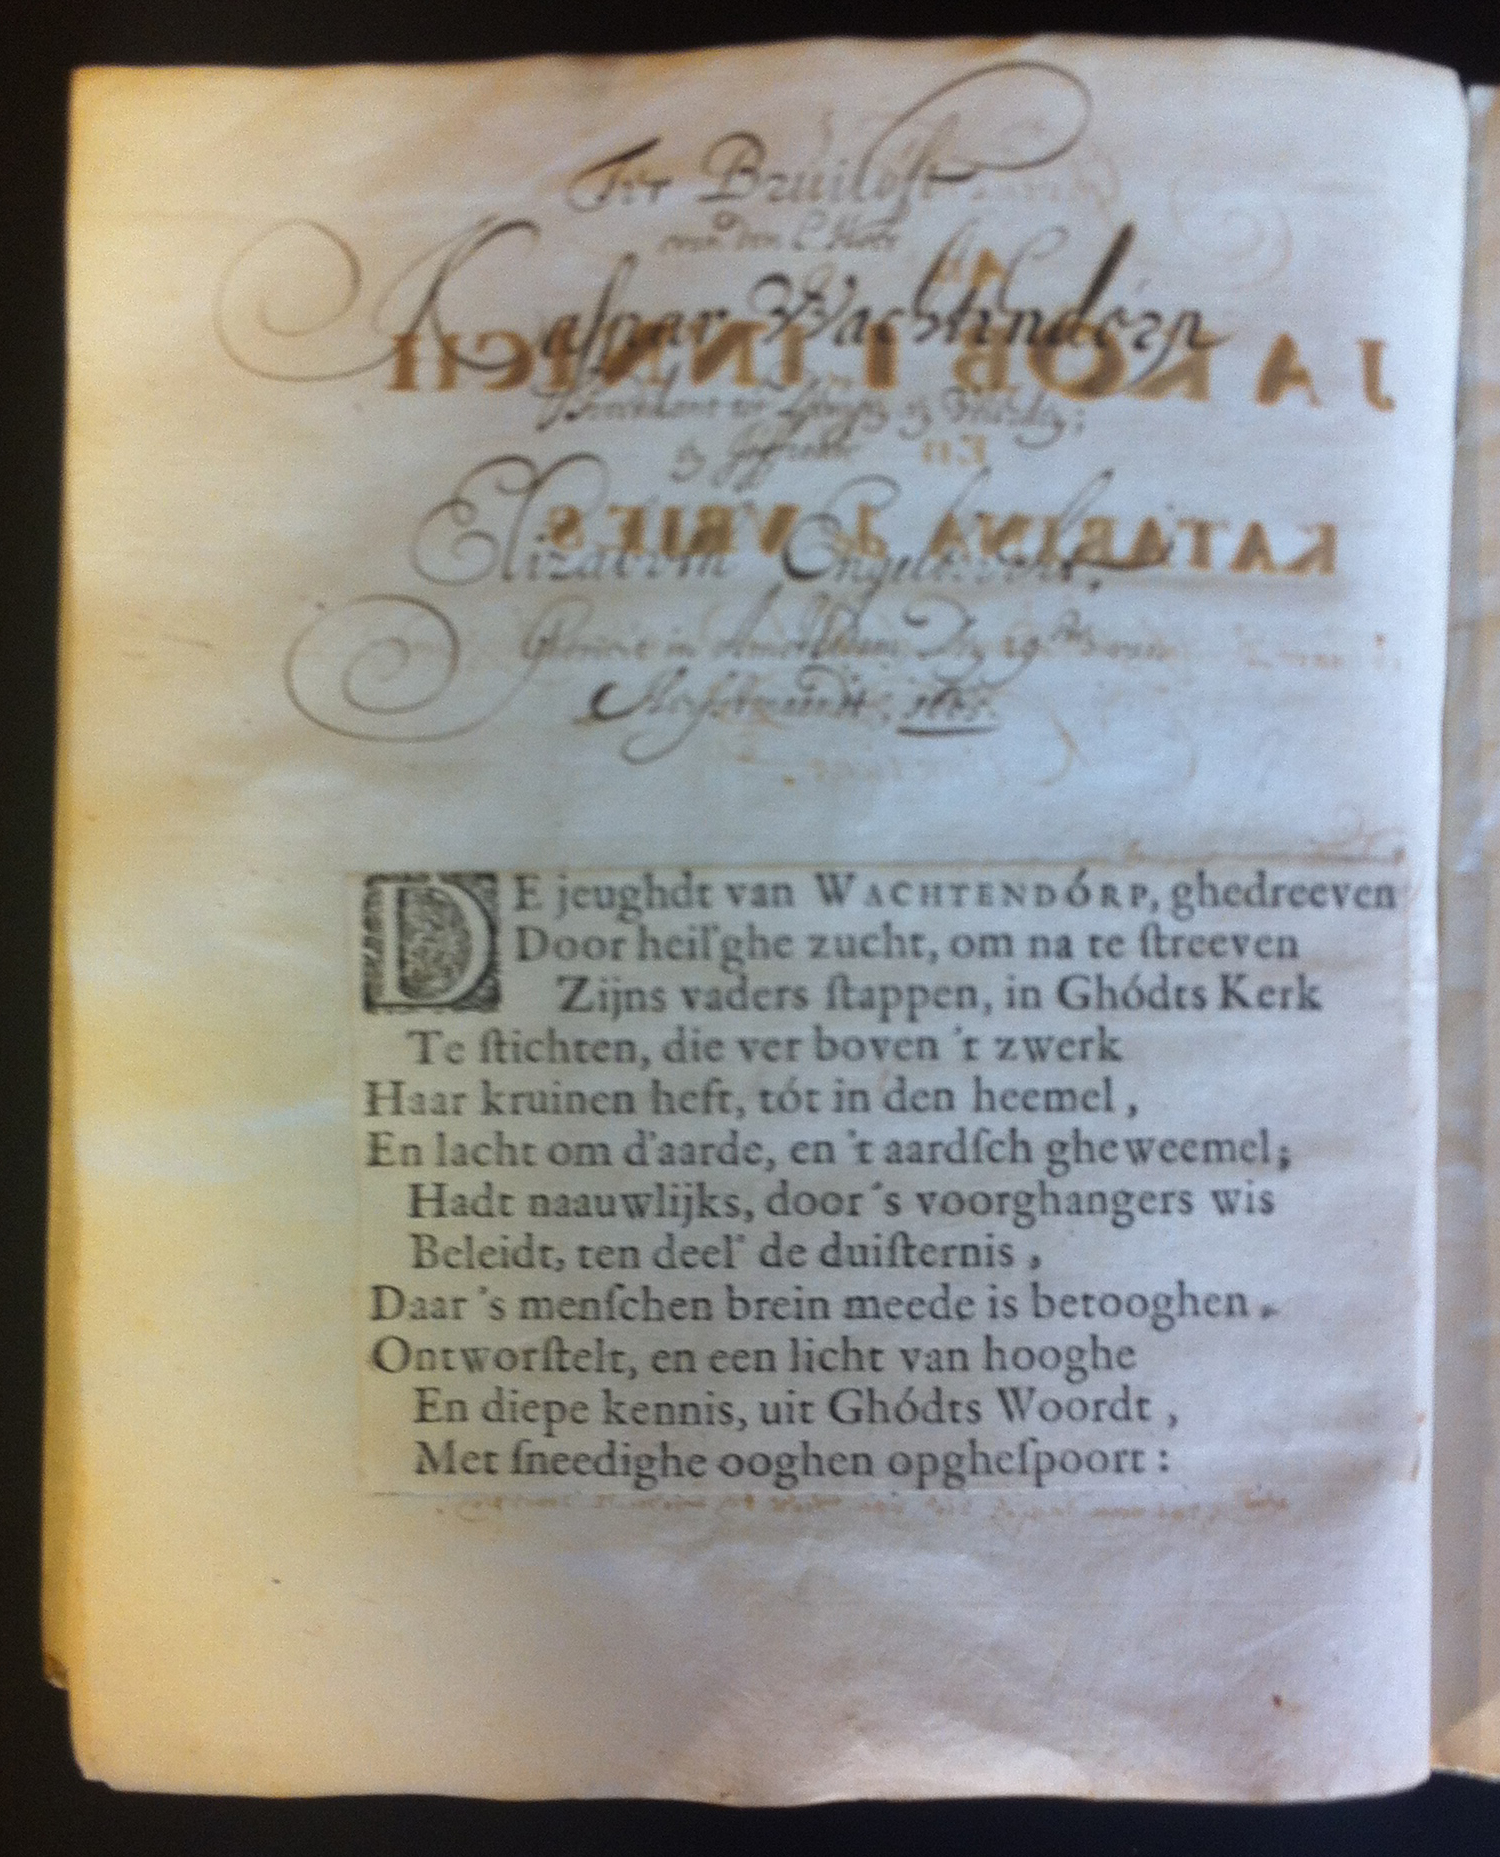 Ter Bruiloft
van den E. Heer
Kaspar Wachtendórp
Predikant te
Elizabeth Engelberts.
in Amsterdam, Den 29
1661.
DE jeughdt van WACHTENDÓRP, ghedreeven
Door heil'ghe zucht, om na te ſtreeven
Zijns vaders ſtappen, in Ghódts Kerk
Te ſtichten, die ver boven 't zwerk
Haar kruinen heft, tót in den heemel,
En lacht om d'aarde, en 't aardſch gheweemel;
Hadt naauwlijks, door 's voorghangers wis
Beleidt, ten deel' de duiſternis,
Daar 's menſchen brein meede is betooghen,
Ontworſtelt, en een licht van hooghe
En diepe kennis, uit Ghódts Woordt,
Met ſneedighe ooghen opgheſpoort: